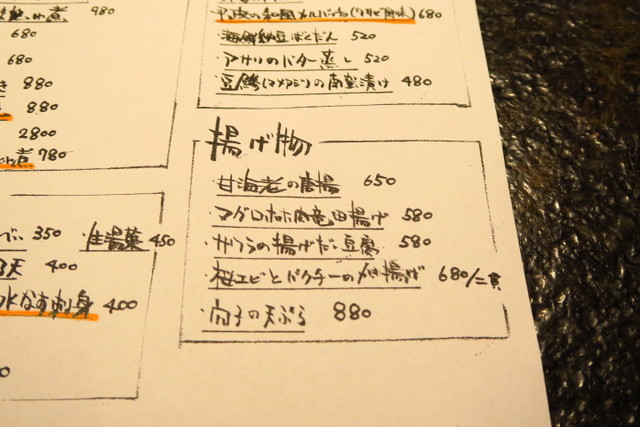 煮 980
680
680
き 880
880
2800
煮 780
の和風カルパッチョ(わさび風味) 680
海鮮納豆ばくだん 520
・アサリのバター蒸し 520
・豆鯵(マメアジ)の南蛮漬け 480
揚げ物
・甘海老の唐揚 650
・マグロホホ肉竜田揚げ 580
・サワラの揚げだし豆腐 580
・桜エビとパクチーのかき揚げ 680/二貫
・穴子の天ぷら 880
350 生湯葉 450
天 400
水なす刺身 400
0